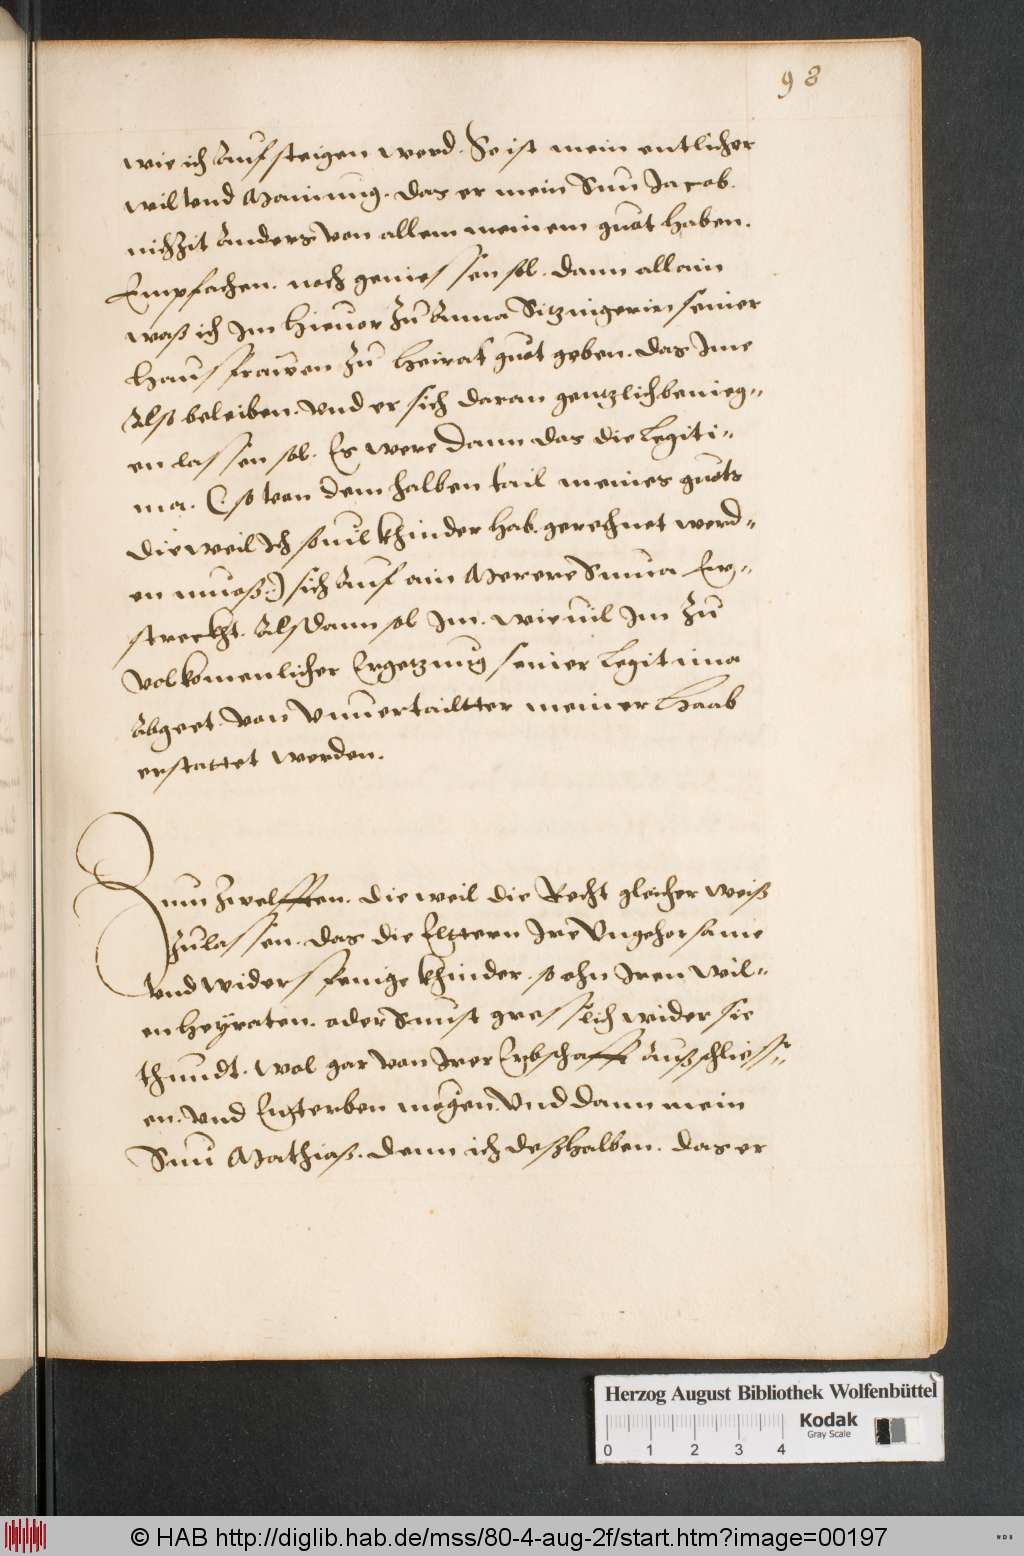 98
wie ich Auf steigen werd. So ist mein entlicher
wil vnd Mainung. das er mein Sun Jacob.
nichzit Anders von allem meinem guot haben.
Empfachen. noch geniessen sol. dann allain
waß ich Im hieuor zu Anna Sitzingerin seiner
hausfrawen zu heirat guot geben. das Ime
Also beleiben. vnd er sich daran gentzlich benieg-
en lassen sol. Es were dann das die Legiti-
ma. (: so von dem halben tail meines guots
die weil Ich souil khinder hab. gerechnet werd-
en mueß:) sich Auf ain Merere Suma Er-
streckht. Alsdann sol Im. wieuil Im zu
volkomenlicher Ergetzung seiner Legitima
Abgeet. von vnuertailtter meiner Haab
erstattet werden.
Zum zwelfften. die weil die Recht gleicher weiß
zulassen. das die Elttern Ire Vngehorsame
vnd widerspenige khinder. so ohn Iren wil-
en heyraten. oder Sunst gresslich wider sie
thundt. wol gar von Irer Erbschafft Außschliess-
en. vnd Enterben mögen. Vnd dann mein
Sun Mathiaß. denn ich deßhalben. das er
Herzog August Bibliothek Wolfenbüttel
Kodak
Gray Scale
0 1 2 3 4
© HAB http://diglib.hab.de/mss/80-4-aug-2f/start.htm?image=00197